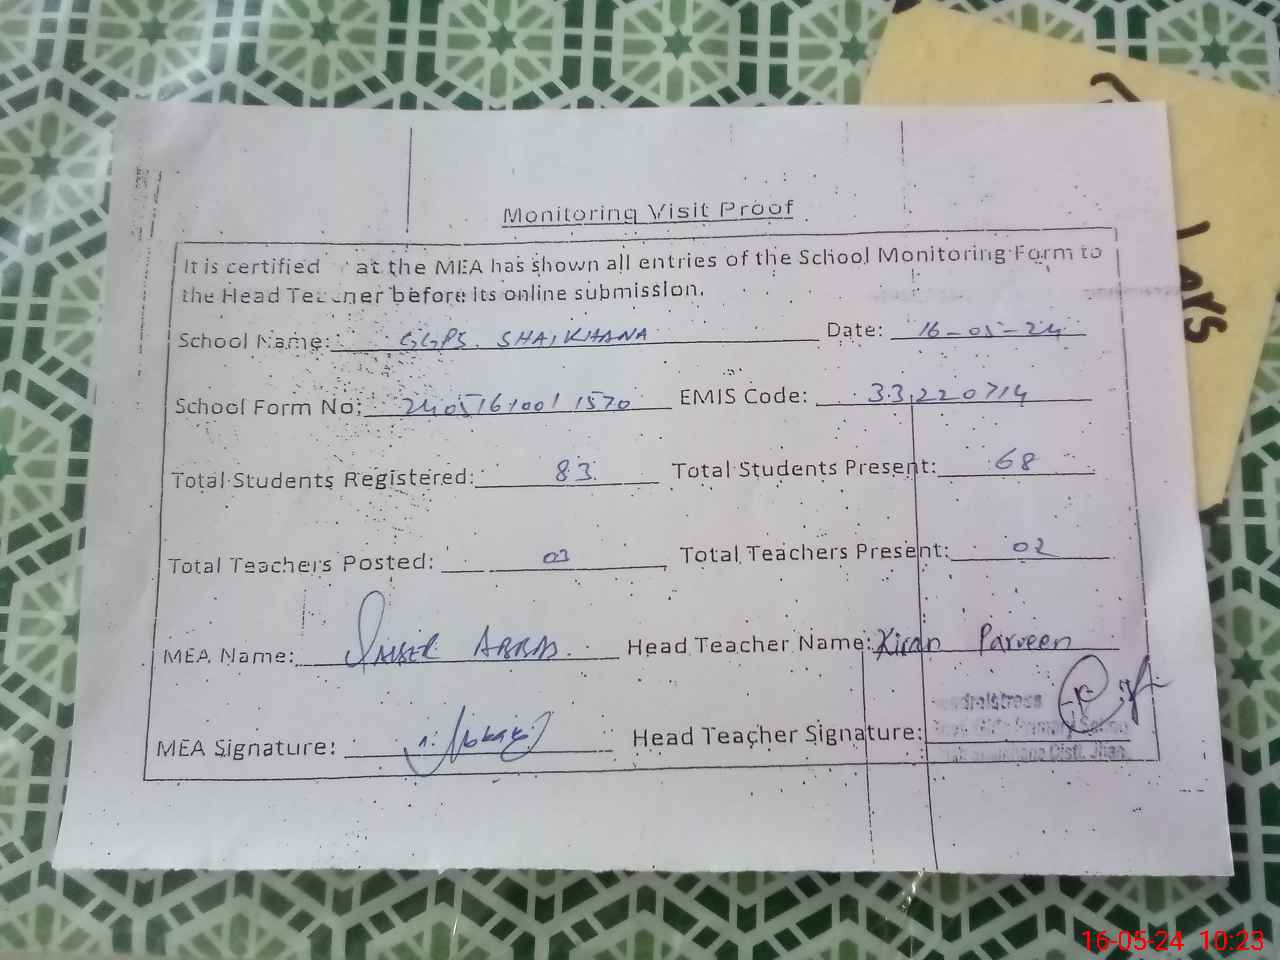 Monitoring Visit Proof
It is certified at the MEA has shown all entries of the School Monitoring Form to
the Head Teacher before its online submission.
School Name: GGPS. SHAIKHANA Date: 16-05-24
School Form No: 2405161001 1570 EMIS Code: 33220714
Total Students Registered: 83 Total Students Present: 68
Total Teachers Posted: 03 Total Teachers Present: 02
MEA Name: Head Teacher Name: Kiran Parveen
MEA Signature: Head Teacher Signature:
16-05-24 10:23